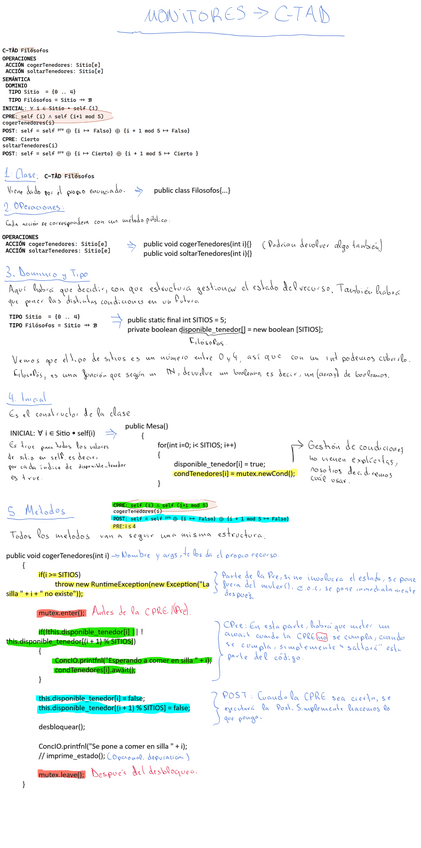 MONITORES → C-TAD
C-TAD Filósofos
OPERACIONES
ACCIÓN cogerTenedores: Sitio[e]
ACCIÓN soltarTenedores: Sitio[e]
SEMÁNTICA
DOMINIO
TIPO Sitio = {0 .. 4}
TIPO Filósofos = Sitio → 𝔹
INICIAL: ∀ i ∈ Sitio • self (i)
CPRE: self (i) ∧ self (i+1 mod 5)
cogerTenedores(i)
POST: self = self pre ⊕ {i ↦ Falso} ⊕ {i + 1 mod 5 ↦ Falso}
CPRE: Cierto
soltarTenedores(i)
POST: self = self pre ⊕ {i ↦ Cierto} ⊕ {i + 1 mod 5 ↦ Cierto }
1. Clase: C-TAD Filósofos
Viene dado por el propio enunciado. ⇒ public class Filosofos{...}
2 Operaciones:
Cada acción se corresponden con un método público.
OPERACIONES
ACCIÓN cogerTenedores: Sitio[e] ⇒ public void cogerTenedores(int i){} (Podrían devolver algo también)
ACCIÓN soltarTenedores: Sitio[e] public void soltarTenedores(int i){}
3. Dominio y Tipo
Aquí habrá que decidir, con que estructura gestionar el estado del recurso. También habrá
que poner las distintas condiciones en un futuro.
TIPO Sitio = {0 .. 4} ⇒ public static final int SITIOS = 5;
TIPO Filósofos = Sitio → 𝔹 private boolean disponible_tenedor[] = new boolean [SITIOS];
Filósofos.
Vemos que el tipo de sitios es un número entre 0 y 4, así que con un int podemos cubrirlo.
Filósofos, es una función que según un IN, devuelve un boolean, es decir, un (array) de booleanos.
4. Inicial
Es el constructor de la clase
INICIAL: ∀ i ∈ Sitio • self(i) ⇒ public Mesa()
{
for(int i=0; i< SITIOS; i++)
{
disponible_tenedor[i] = true;
condTenedores[i] = mutex.newCond();
}
}
Es true para todos los valores
de sitio en self, es decir,
por cada índice de disponible_tenedor
es true.
Gestión de condiciones
no vienen explícitas,
nosotros decidiremos
cuál usar.
5 Metodos
CPRE: self (i) ∧ self (i+1 mod 5)
cogerTenedores(i)
POST: self = self pre ⊕ {i ↦ Falso} ⊕ {i + 1 mod 5 ↦ Falso}
PRE:i ≤ 4
Todos los metodos van a seguir una misma estructura.
public void cogerTenedores(int i) → Nombre y args, te los da el propio recurso.
{
if(i >= SITIOS)
throw new RuntimeException(new Exception("La
silla " + i + " no existe"));
Parte de la Pre, si no involucra el estado, se pone
fuera del mutex(), e.o.c. se pone inmediatamente
después.
mutex.enter(); Antes de la CPRE/Post.
if(!this.disponible_tenedor[i] ||!
this.disponible_tenedor[(i + 1) % SITIOS])
{
ConcIO.printfnl("Esperando a comer en silla " + i);
condTenedores[i].await();
}
CPre: En esta parte, habrá que meter un
await cuando la CPRE no se cumpla, cuando
se cumpla, simplemente "saltará" esta
parte del código.
this.disponible_tenedor[i] = false;
this.disponible_tenedor[(i + 1) % SITIOS] = false;
POST: Cuando la CPRE sea cierta, se
ejecutará la Post. Simplemente hacemos lo
que ponga.
desbloquear();
ConcIO.printfnl("Se pone a comer en silla " + i);
// imprime_estado(); (Opcional, depuración)
mutex.leave(); Después del desbloqueo.
}